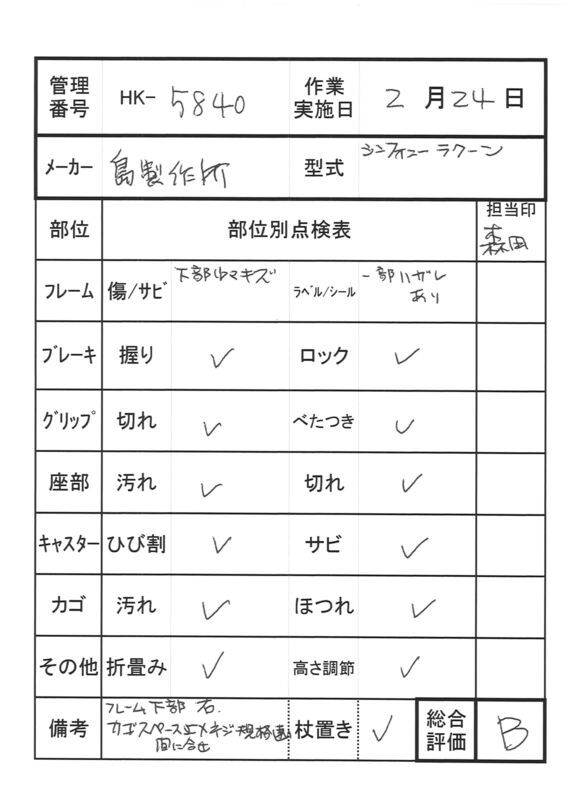 管理番号 HK- 5840 作業実施日 2月24日
メーカー 島製作所 型式 シンフォニーラクーン
部位 部位別点検表 担当印 森田
フレーム 傷/サビ 下部 キズ ラベル/シール 一部ハガレあり
ブレーキ 握り ✓ ロック ✓
グリップ 切れ ✓ べたつき ✓
座部 汚れ ✓ 切れ ✓
キャスター ひび割 ✓ サビ ✓
カゴ 汚れ ✓ ほつれ ✓
その他 折畳み ✓ 高さ調節 ✓
備考 フレーム下部 右. 杖置き ✓ 総合評価 B
カゴスペース